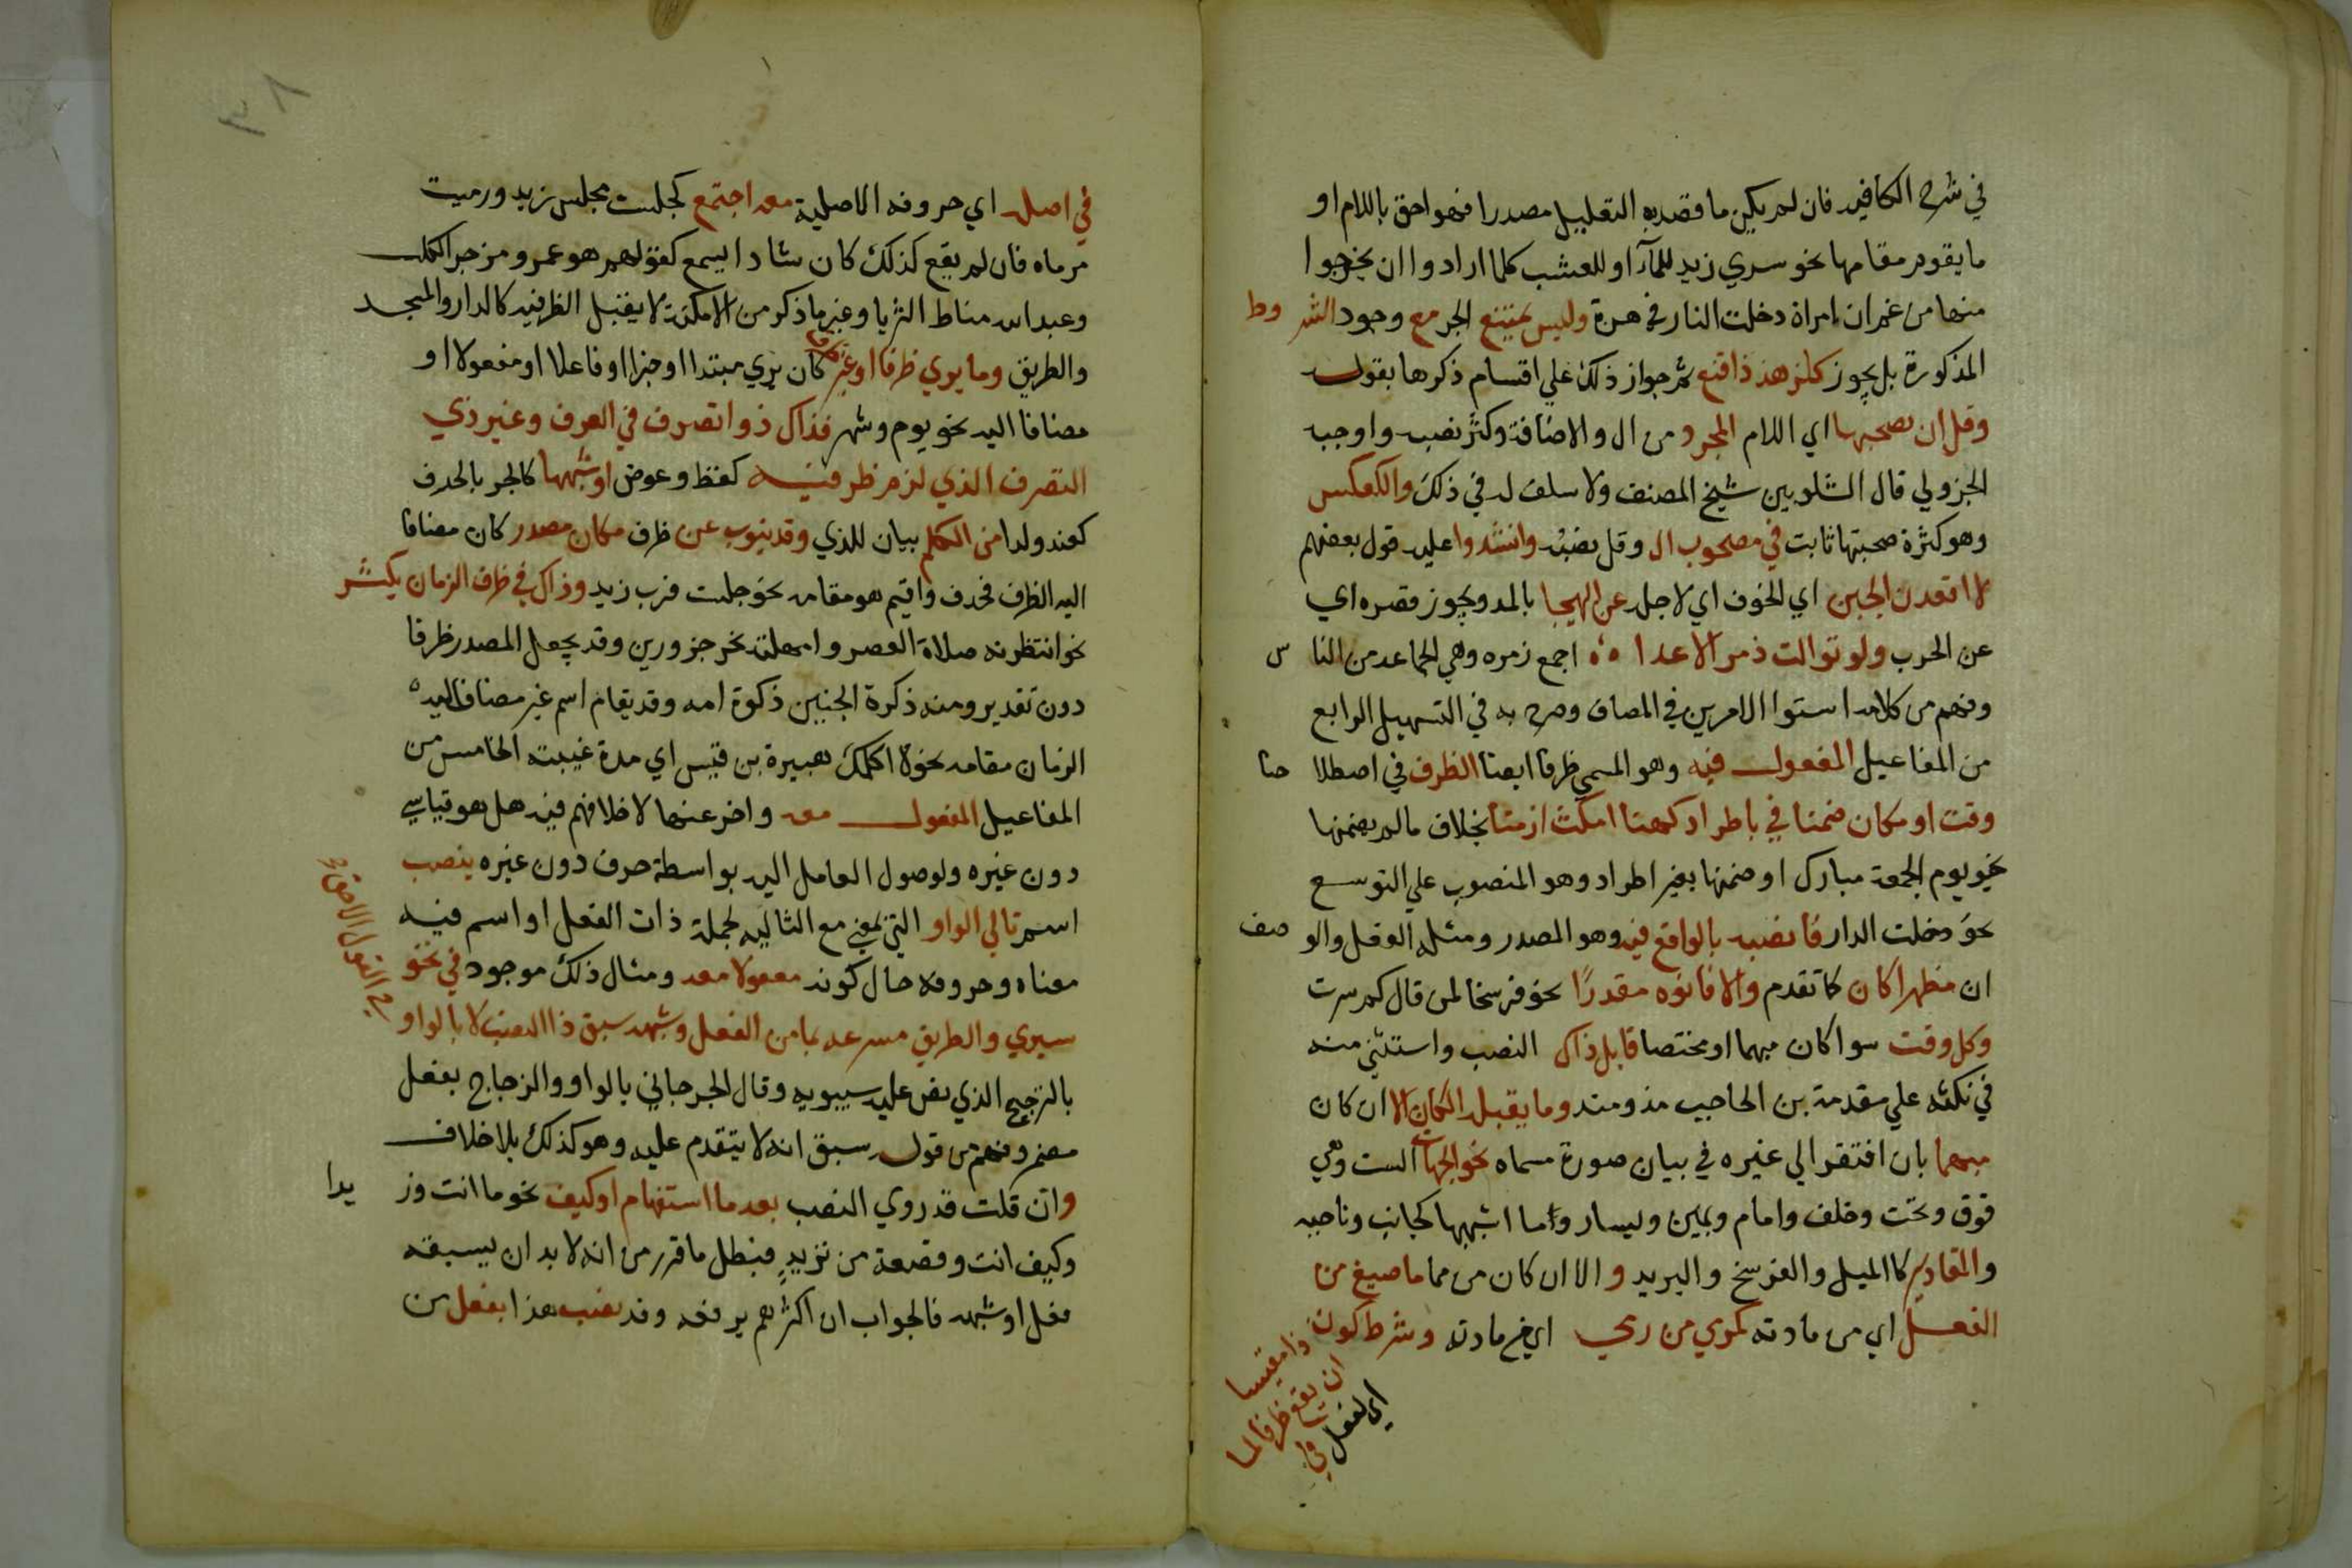 في شرح الكافيه فان لم يكن ما قصد به التعليل مصدرا فهو احق باللام او
ما يقوم مقامها نحو سري زيد للمآء او للعشب كلما ارادوا ان يخرجوا
منها من غم ان امراة دخلت النار في هرة وليس يمتنع الجر مع وجود الشروط
المذكورة بل يجوز كلزهد ذا قنع ثم جواز ذلك علي اقسام ذكرها بقوله
وقل ان يصحبها اي اللام المجرد من ال والاضافة وكثر نصبه واوجبه
الجزولي قال الشلوبين شيخ المصنف ولا سلف له في ذلك والعكس
وهو كثرة صحبتها ثابت في مصحوب ال وقل نصبه وانشدوا عليه قول بعضهم
لا اقعد الجبن اي الخوف اي لاجله عن الهيجا بالمد ويجوز قصره اي
عن الحرب ولو توالت زمر الاعدا ه اجمع زمره وهي الجماعه من الناس
وفهم من كلامه استوا الامرين في المضاف وصرح به في التسهيل الرابع
من المفاعيل المفعول فيه وهو المسمي ظرفا ايضا الظرف في اصطلاحنا
وقت او مكان ضمنا في باطراد كهنا امكث ازمنا بخلاف ما لم يضمنها
نحو يوم الجمعة مبارك او ضمنها بغير اطراد وهو المنصوب علي التوسع
نحو دخلت الدار فانصبه بالواقع فيه وهو المصدر ومثله الفعل والوصف
ان مظهرا كان كما تقدم والا فانوه مقدرًا نحو فرسخا لمن قال كم سرت
وكل وقت سوا كان مبهما او مختصا قابل ذاك النصب واستثني منه
في نكته علي مقدمة بن الحاجب مذ ومنذ وما يقبله المكان الا ان كان
مبهما بان افتقر الي غيره في بيان صورة مسماه نحو الجهات الست وهي
فوق وتحت وخلف وامام ويمين ويسار وما اشبهها كجانب وناحيه
والمقادير كالميل والفرسخ والبريد والا ان كان من مما ما صيغ من
الفعل اي من مادته كمرمي من رمي اي من مادته وشرط كون ذا مقيسا
ان يقع ظرفا لما
اي لفعل في
٣٨
في اصله اي حروفه الاصلية معه اجتمع كجلست مجلس زيد ورميت
مرماه فان لم يقع كذلك كان شاذا يسمع كقولهم هو عمرو مزجر الكلب
وعبد الله مناط الثريا وغير ما ذكر من الامكنة لا يقبل الظرفيه كالدار والمسجد
والطريق وما يري ظرفا وغير ظرف كان يري مبتدا او خبرا او فاعلا او مفعولا او
مضافا اليه نحو يوم وشهر فذاك ذو تصرف في العرف وغير ذي
التصرف الذي لزم ظرفيه كقط وعوض او شبهها كالجر بالحرف
كعند ولدا من الكلم بيان للذي وقد ينوب عن ظرف مكان مصدر كان مضافا
اليه الظرف فحذف واقيم هو مقامه نحو جلست قرب زيد وذاك في ظرف الزمان يكثر
نحو انتظرته صلاة العصر وامهلته نحر جزورين وقد يجعل المصدر ظرفا
دون تقدير ومنه ذكوة الجنين ذكوة امه وقد يقام اسم غير مضاف اليه
الزمان مقامه نحو لا اكلمك هبيرة بن قيس اي مدة غيبته الخامس من
المفاعيل المفعول معه واخر عنها لاختلافهم فيه هل هو قياسي
دون غيره ولوصول العامل اليه بواسطة حرف دون غيره ينصب
اسم تالي الواو التي بمعني مع التاليه لجملة ذات الفعل او اسم فيه
معناه وحروفه حال كونه مفعولا معه ومثال ذلك موجود في نحو
سيري والطريق مسرعه بما من الفعل وشبهه سبق ذا النصب لا بالواو
في القول الاحق
بالترجيح الذي نص عليه سيبويه وقال الجرجاني بالواو والزجاج بفعل
مضمر وفهم من قوله سبق انه لا يتقدم عليه وهو كذلك بلا خلاف
وان قلت قد روي النصب بعد ما استفهام او كيف نحو ما انت وزيدا
وكيف انت وقصعة من ثريدٍ فبطل ما قرر من انه لا بد ان يسبقه
فعل او شبهه فالجواب ان اكثرهم يرفعه وقد نصب هذا بفعل من